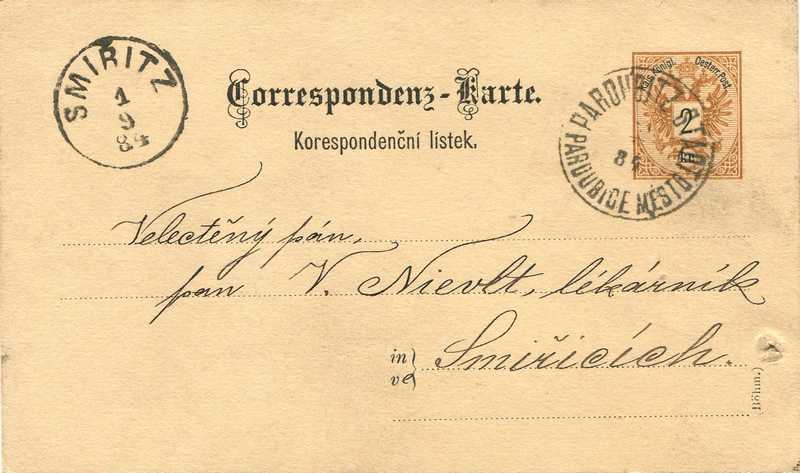 SMIŘITZ
1
9
84
Correspondenz-Karte.
Korespondenční lístek.
Kais. Königl. Oesterr. Post.
2
PARDUBITZ STADT
84
PARDUBICE MĚSTO
Velectěný pán,
pan V. Nievlt, lékárník
in
ve
Smiřicích.
(Böhm.)